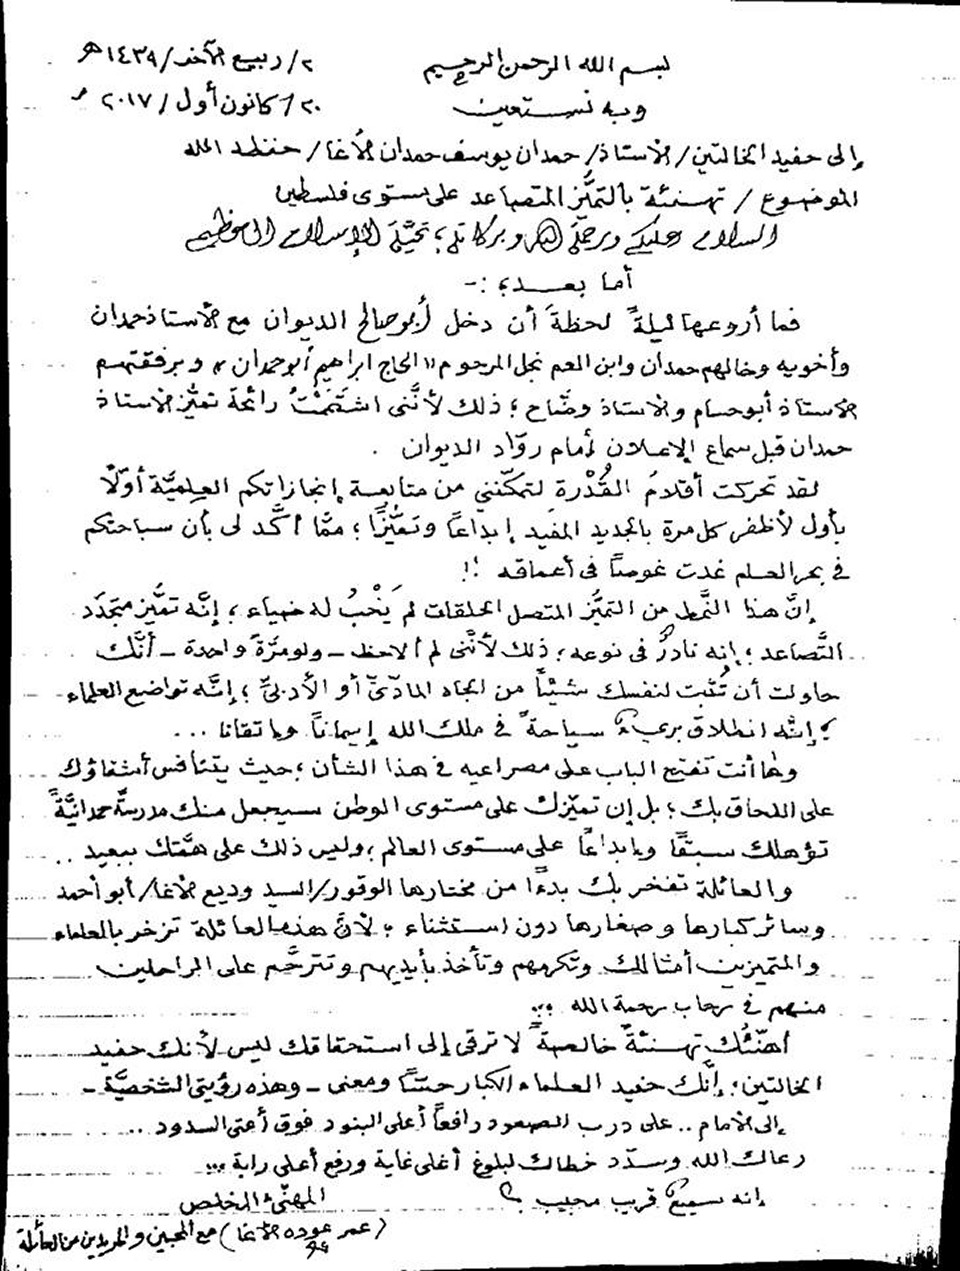 بسم الله الرحمن الرحيم
٢/ ربيع الآخر/ ١٤٣٩هـ
وبه نستعين
٢٠/ كانون أول/ ٢٠١٧ م
إلى حفيد الخالتين/ الأستاذ/ حمدان يوسف حمدان الأغا/ حفظه الله
الموضوع/ تهنئة بالتميُّز المتصاعد على مستوى فلسطين
السلام عليكم ورحمة الله وبركاته؛ تحيَّة الإسلام العظيم
أما بعد؛ :-
فما أروعها ليلةً لحظةَ أن دخل أبو صالح الديوان مع الأستاذ حمدان
وأخويه وخالهم حمدان وابن العم نجل المرحوم "الحاج ابراهيم أبو حمدان" وبرفقتهم
الأستاذ أبو حسام والأستاذ وضَّاح؛ ذلك لأنَّني اشتَمَمْتُ رائحة تميُّز الأستاذ
حمدان قبل سماع الإعلان أمام روّاد الديوان .
لقد تحركت أقلامُ القُدْرة لتمكّنني من متابعة إنجازاتكم العِلميَّة أوّلاً
بأول لأظفر كل مرة بالجديد المفيد إبداعاً وتميُّزاً؛ ممَّا أكَّد لي بأن سباحتكم
في بحر العلم غدت غوصاً في أعماقه !!
إنَّ هذا النَّمط من التميُّز المتصل الحلقات لم يَخْبُ له ضياء؛ إنَّه تميُّز متجدّد
التَّصاعد؛ إنه نادرٌ في نوعه؛ ذلك لأنَّني لم ألاحظ - ولو مرَّةً واحدة - أنَّك
حاولت أن تُثبت لنفسك شيئاً من الجاه المادّيّ أو الأدبيّ؛ إنَّه تواضع العلماء
؛ إنَّه انطلاق بريء سياحةً في ملك الله إيماناً وإتقانا ...
وها أنت تفتح الباب على مصراعيه في هذا الشأن؛ حيث يتنافس أشقاؤك
على اللحاق بك؛ بل إن تميّزك على مستوى الوطن سيجعل منك مدرسةً حمدانيَّةً
تؤهلك سبقًا وإبداعاً على مستوى العالم؛ وليس ذلك على همَّتك ببعيد ..
والعائلة تفخر بك بدءًا من مختارها الوقور/ السيد وديع الأغا/ أبو أحمد
وسائر كبارها وصغارها دون استثناء؛ لأنَّ هذه العائلة تزخر بالعلماء
والمتميزين أمثالك وتكرمهم وتأخذ بأيديهم وتترحَّم على الراحلين
منهم في رحاب رحمة الله ..
أهنّئُك تهنئةً خالصةً لا ترقى إلى استحقاقك ليس لأنك حفيد
الخالتين؛ إنَّك حفيد العلماء الكبار حسّاً ومعنى - وهذه رؤيتي الشخصيَّة -
إلى الأمام .. على درب الصعود رافعاً أعلى البنود فوق أعتى السدود ..
رعاك الله وسدّد خطاك لبلوغ أغلى غاية ورفع أعلى راية ...
إنه سميع قريب مجيب
المهنّئ المخلص
(عمر عوده الأغا) مع المحبين والمريدين من العائلة